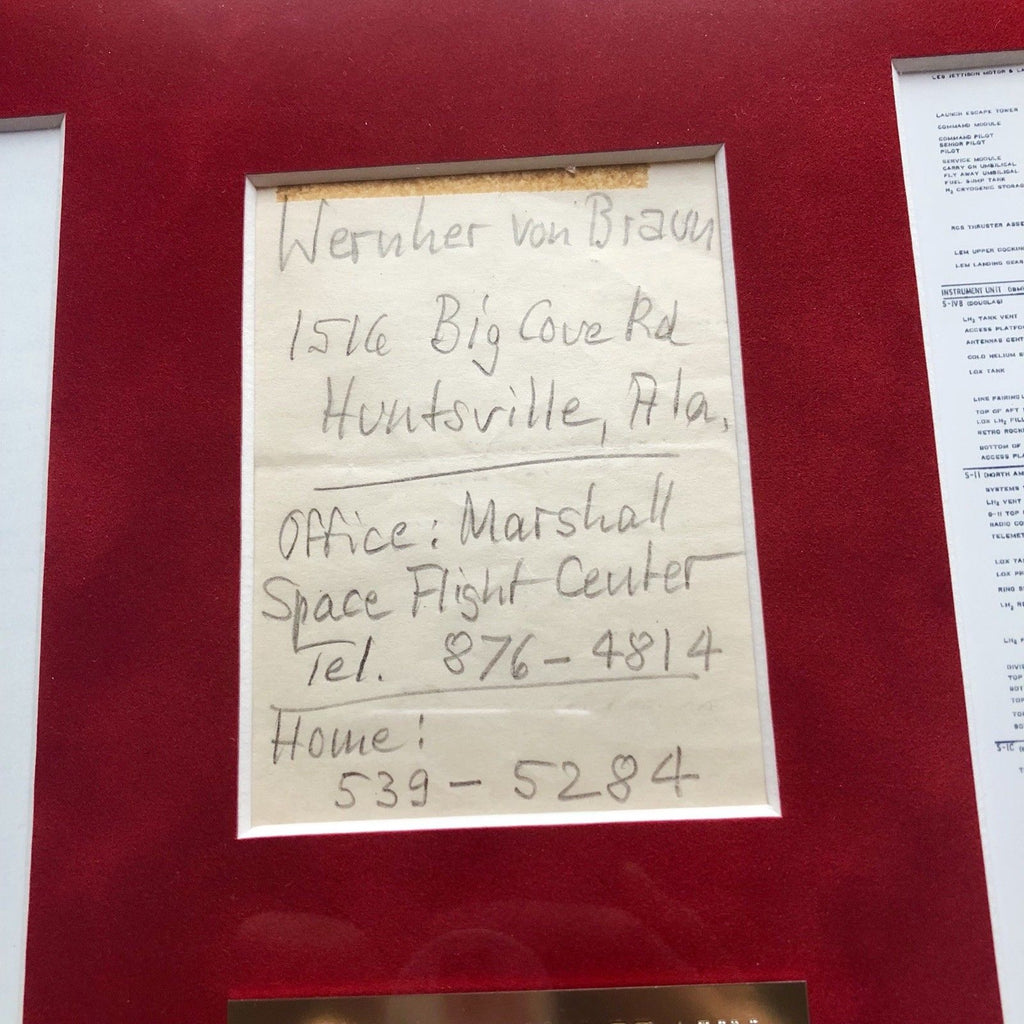 Wernher von Braun
1516 Big Cove Rd
Huntsville, Ala.
Office: Marshall
Space Flight Center
Tel. 876-4814
Home:
539-5284
LAUNCH ESCAPE TOWER
COMMAND MODULE
COMMAND PILOT
SENIOR PILOT
PILOT
SERVICE MODULE
CARRY ON UMBILICAL
FLY AWAY UMBILICAL
FUEL SUMP TANK
H₂ CRYOGENIC
RCS THRUSTER
LEM UPPER
LEM LANDING GEAR
INSTRUMENT UNIT
S-IVB (DOUGLAS)
LH₂ TANK VENT
ACCESS
ANTENNAS
COLD HELIUM
LOX TANK
LINE FAIRING
TOP OF AFT
LOX LH₂ FILL
RETRO
BOTTOM OF
ACCESS
S-II
SYSTEMS
LH₂ VENT
S-II TOP
RADIO
LOX
LOX
RING
LH₂
LH₂
TOP
TOP
S-IC